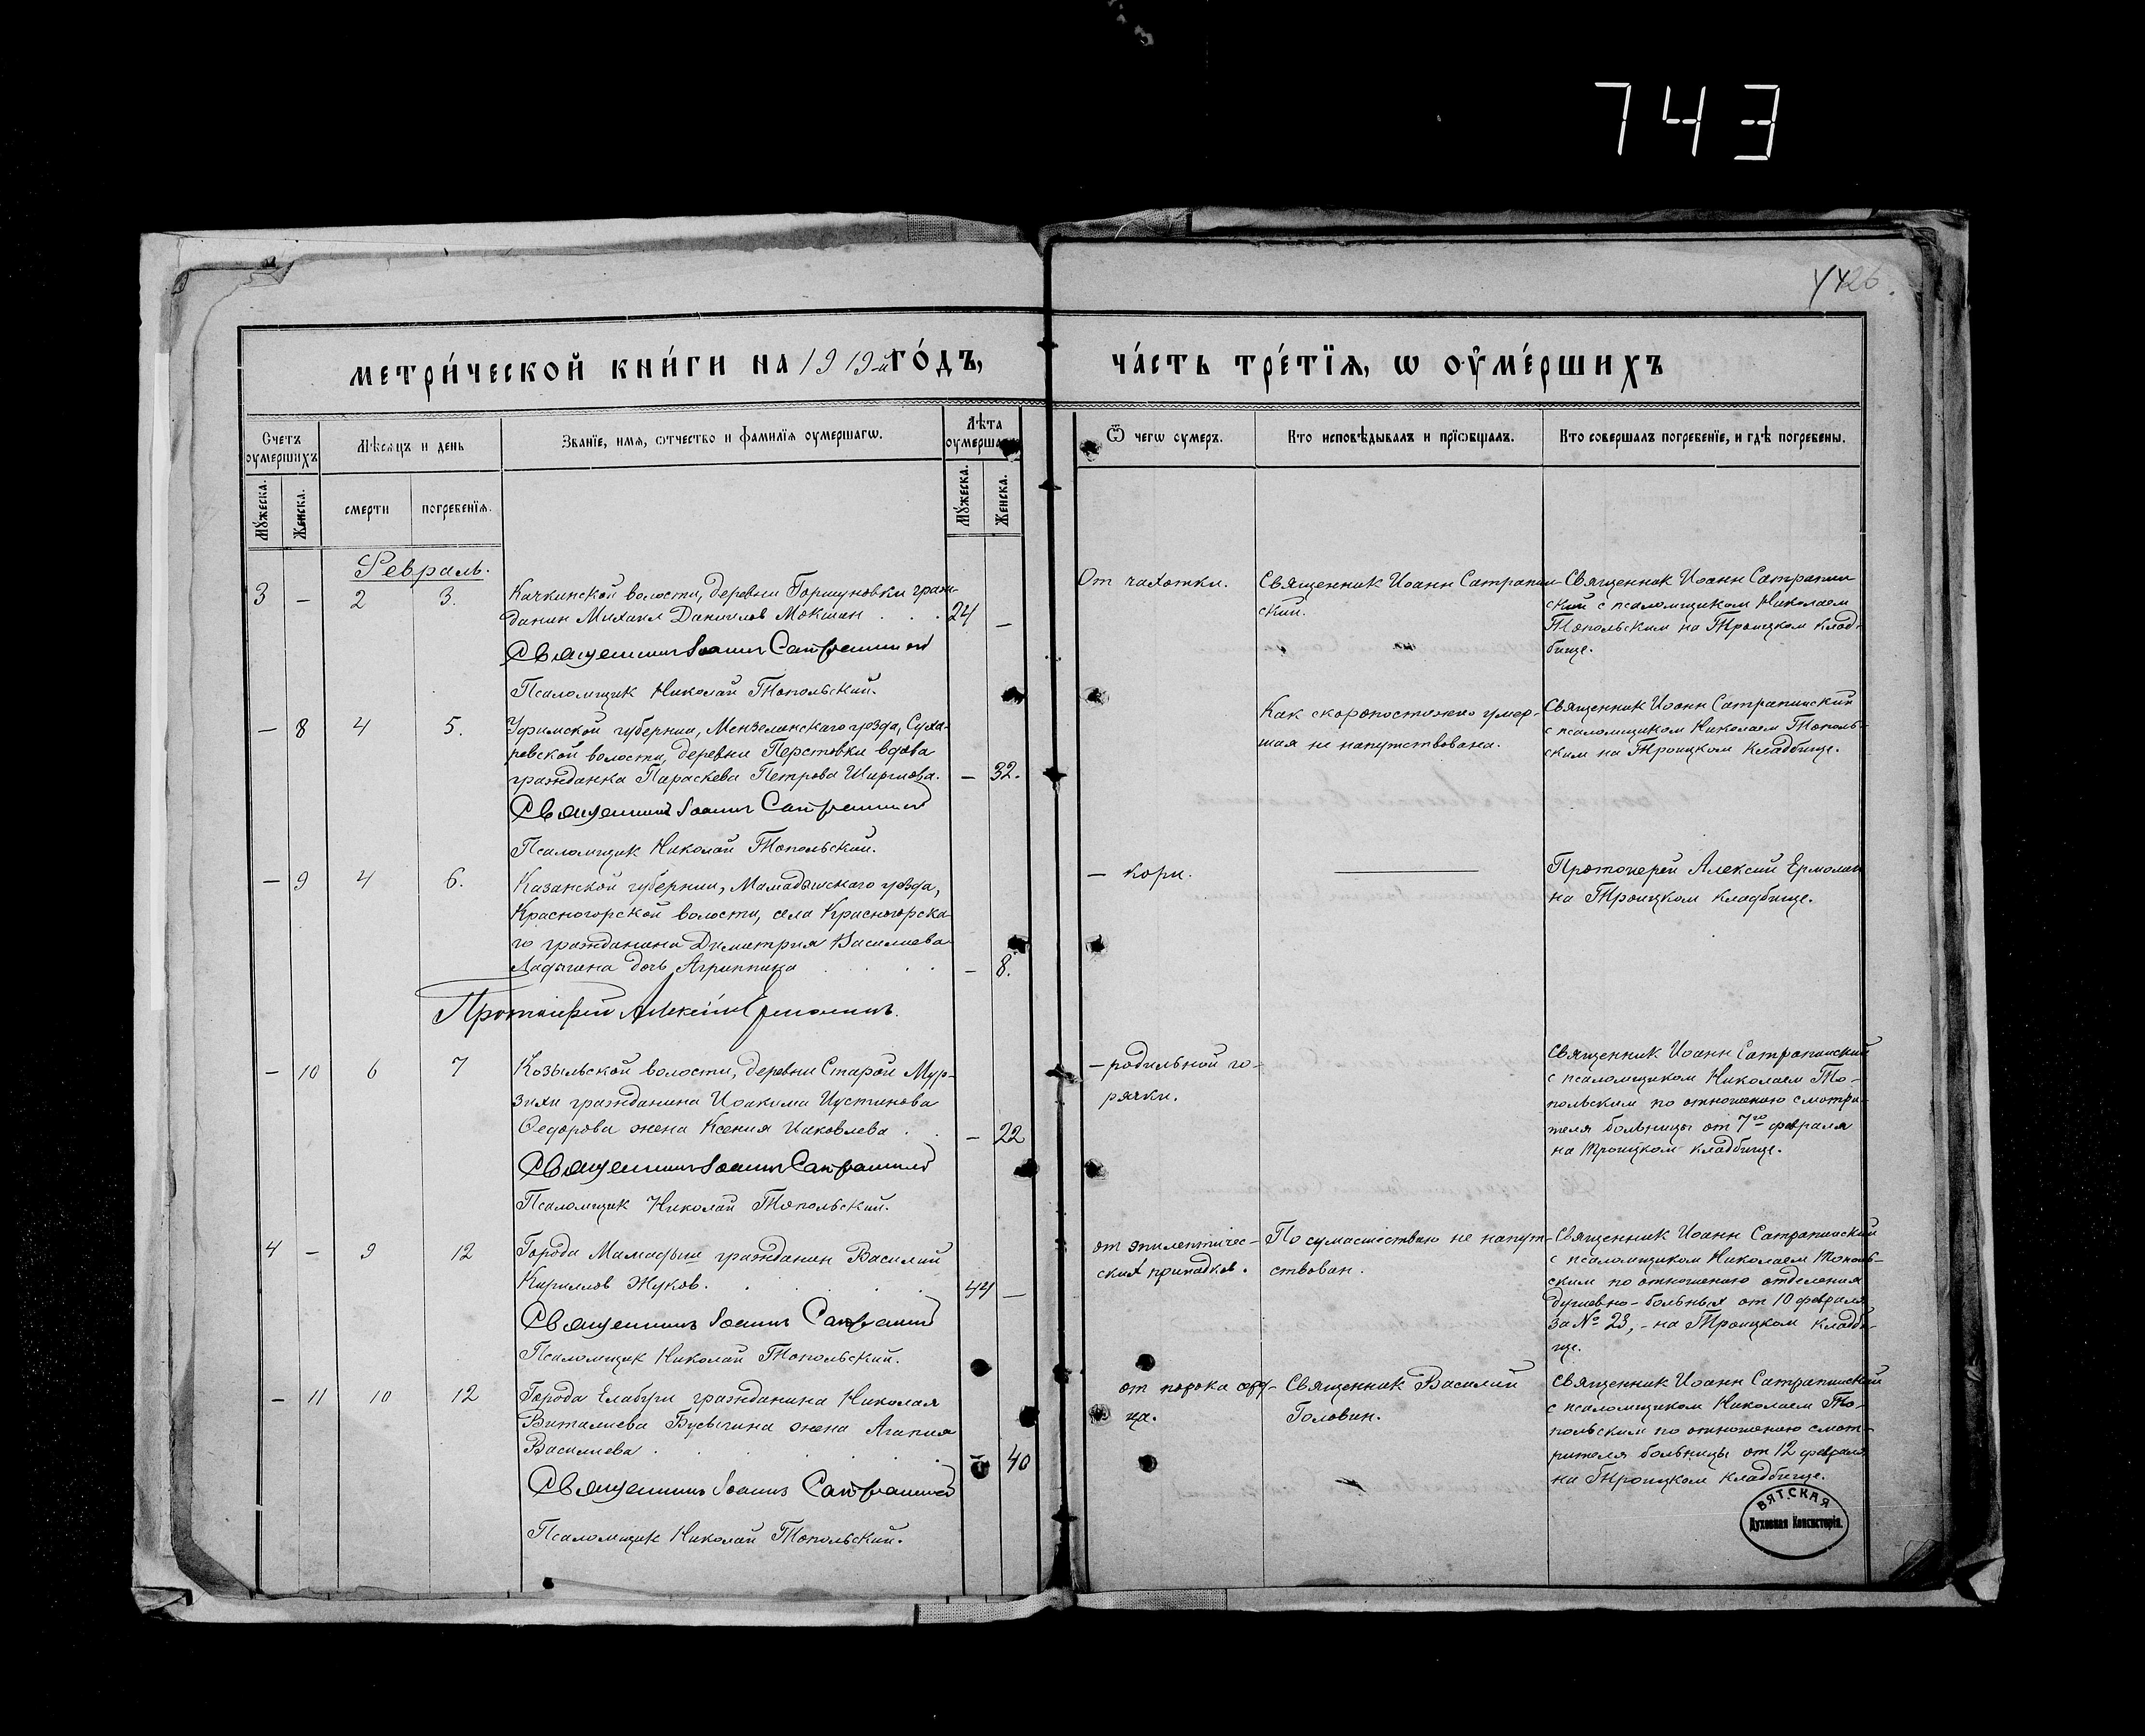 743
26.
метри́ческой кни́ги на 1919-й го́дъ,
ча́сть тре́тїѧ, ѡ оу҆ме́ршихъ
Счетъ оумершихъ
Мѣсяцъ и день
Званїе, имѧ, ѿчество и фамилїѧ оумершагѡ.
Лѣта оумершагѡ
Ѿ чегѡ оумеръ.
Кто исповѣдывалъ и прїѡбщалъ.
Кто совершалъ погребенїе, и гдѣ погребены.
Мужеска.
Женска.
смерти
погребенїѧ.
Мужеска.
Женска.
Февраль.
3 — 2 3.
Качкинской волости, деревни Горшуновки граж-
данин Михаил Данилов Мокшин . . . 24 —
Священник Иоанн Сатрапинский
Псаломщик Николай Топольский.
От чахотки.
Священник Иоанн Сатрапин-
ский.
Священник Иоанн Сатрапин
ский с псаломщиком Николаем
Топольским на Троицком клад-
бище.
— 8 4 5.
Уфимской губернии, Мензелинскаго уезда, Суха-
ревской волости, деревни Перстовки вдова
гражданка Параскева Петрова — 32.
Священник Иоанн Сатрапинский
Псаломщик Николай Топольский.
Как скоропостижно умер-
шая не напутствована.
Священник Иоанн Сатрапинский
с псаломщиком Николаем Тополь-
ским на Троицком кладбище.
— 9 4 6.
Казанской губернии, Мамадышскаго уезда,
Красногорской волости, села Красногорска-
го гражданина Димитрия Василиева
Ладыгина дочь Агриппина . . . . — 8.
Протоиерей Алексий Ермолин.
— кори.
Протоиерей Алексий Ермолин
на Троицком кладбище.
— 10 6 7
Козыльской волости, деревни Старой Мур-
зихи гражданина Иоакима Иустинова
Федорова жена Ксения Иаковлева . . — 22
Священник Иоанн Сатрапинский
Псаломщик Николай Топольский.
— родильной го-
рячки.
Священник Иоанн Сатрапинский
с псаломщиком Николаем То-
польским по отношению смотри-
теля больницы от 7го февраля
на Троицком кладбище.
4 — 9 12
Города Мамадыш гражданин Василий
Кириллов Жуков. . . . . 44 —
Священник Иоанн Сатрапинский
Псаломщик Николай Топольский.
от эпилептичес-
ских припадков.
По сумасшествию не напут-
ствован.
Священник Иоанн Сатрапинский
с псаломщиком Николаем Тополь-
ским по отношению отделения
душевно-больных от 10 февраля
за № 23, - на Троицком кладби-
ще.
— 11 10 12
Города Елабуги гражданина Николая
Виталиева Бусыгина жена Агапия
Василиева . . . . . — 40
Священник Иоанн Сатрапинский
Псаломщик Николай Топольский.
от порока серд-
ца.
Священник Василий
Головин.
Священник Иоанн Сатрапинский
с псаломщиком Николаем То-
польским по отношению смот-
рителя больницы от 12 февраля
на Троицком кладбище.
ВЯТСКАЯ
Духовная Консисторія.